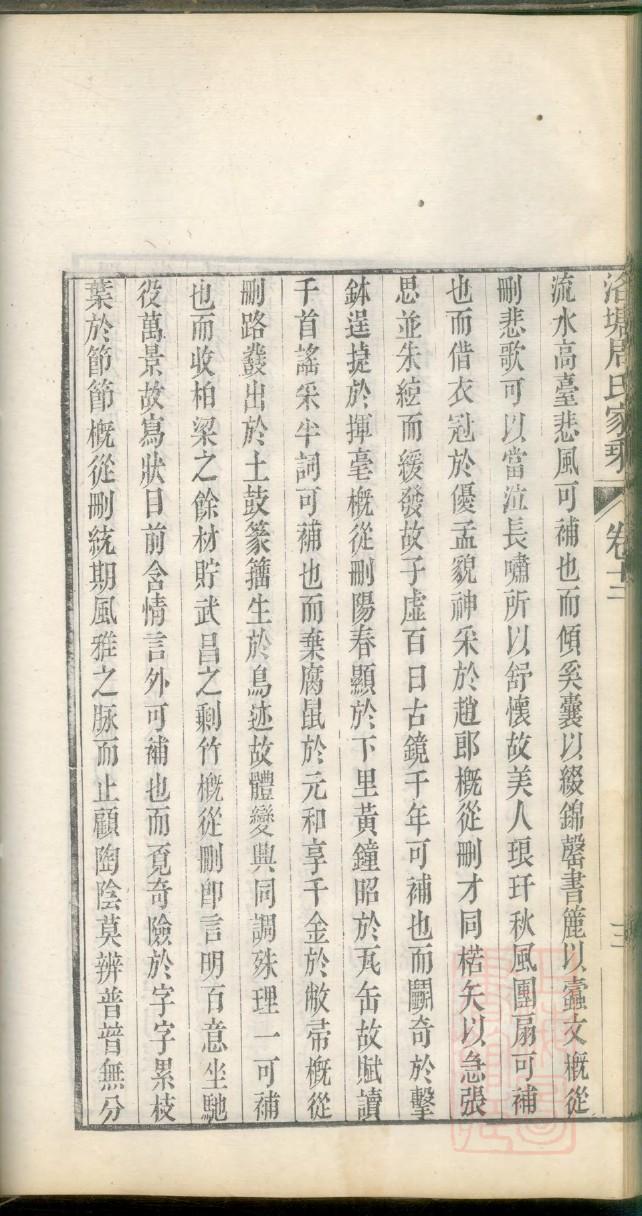 洛塘周氏家乘 卷十三 三
流水高臺悲風可補也而傾奚囊以綴錦罄書簏以蠹文概從
刪悲歌可以當泣長嘯所以舒懷故美人琅玕秋風團扇可補
也而借衣冠於優孟貌神采於趙郎概從刪才同楛矢以急張
思並朱絃而緩發故子虛百日古鏡千年可補也而鬬奇於擊
鉢逞捷於揮毫概從刪陽春顯於下里黃鐘昭於瓦缶故賦讀
千首謠采半詞可補也而棄腐鼠於元和享千金於敝帚概從
刪路鼗出於土鼓篆籀生於鳥迹故體變興同調殊理一可補
也而收柏梁之餘材貯武昌之剩竹概從刪卽言明百意坐馳
役萬景故寫狀目前含情言外可補也而覓奇險於字字累枝
葉於節節概從刪統期風雅之脉而止顧陶陰莫辨普暜無分